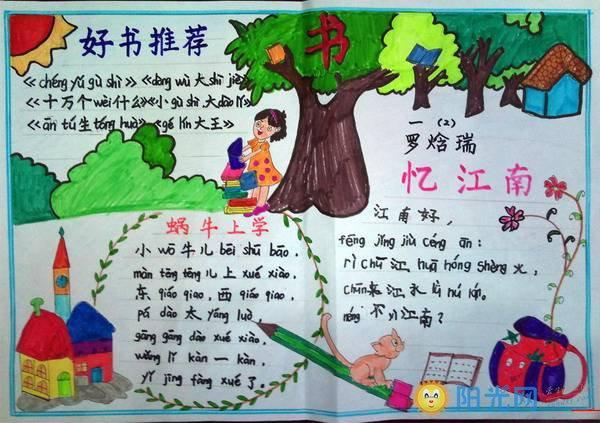 好书推荐
《chéng yǔ gù shì》《dòng wù 大 shì jiè》
《十万个 wèi 什么》《小 gù shì 大 dào lǐ》
《ān tú 生 tóng huà》《gé lín 大王》
书
一（2）
罗焓瑞
蜗牛上学
小 wō 牛儿 bēi shū bāo，
màn tēng tēng 儿上 xué xiào，
东 qiáo qiao，西 qiáo qiao，
pá dào 太 yáng luò，
gāng gāng dào xué xiào，
wǎng lǐ kàn 一 kàn，
yǐ jīng fàng xué 了。
忆江南
江南好，
fēng jǐng jiù céng ān：
rì chū 江 huā hóng shèng 火，
chūn 来江水 lǜ rú lán。
néng 不 yì 江南？
阳光网